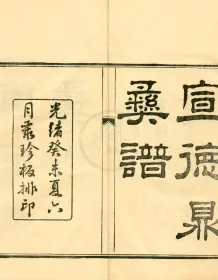 宣德鼎
彞譜
光緒癸未夏六
月聚珍板排印